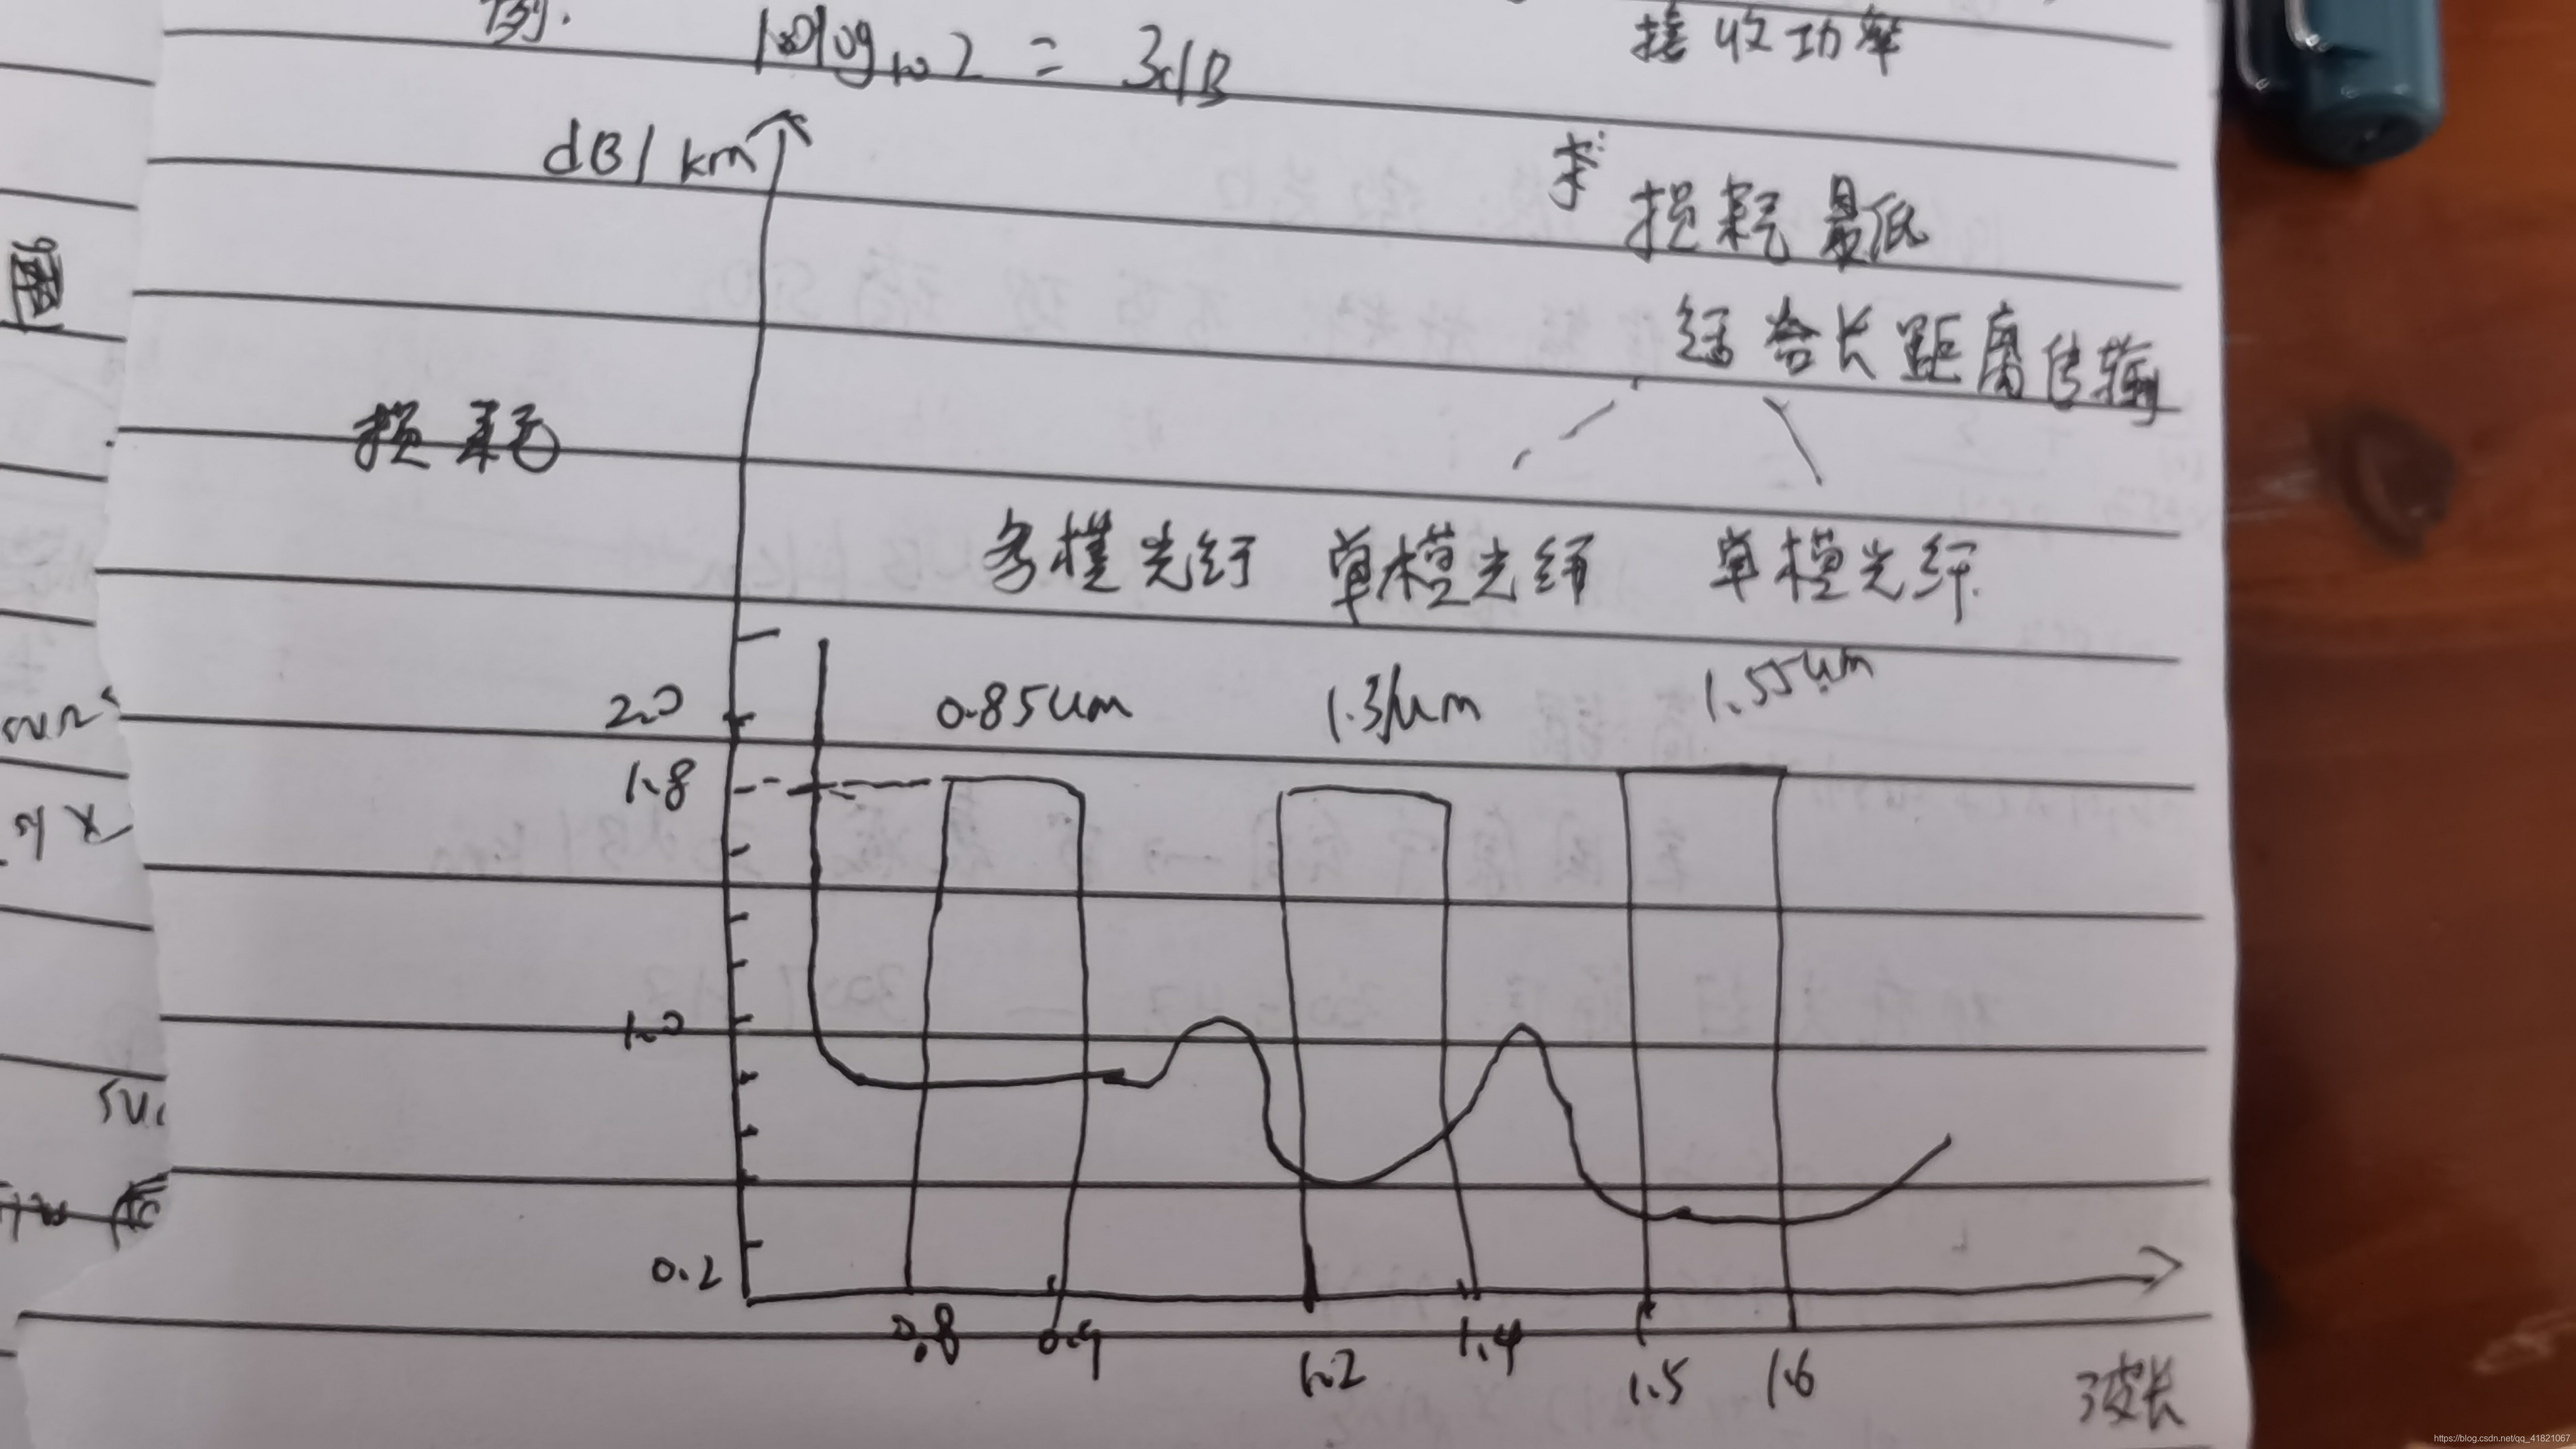 例.
10log₁₀2 = 3dB
接收功率
dB/km
求:
损耗最低
适合长距离传输
损耗
多模光纤 单模光纤 单模光纤
0.85um 1.3um 1.55um
2.0
1.8
1.0
0.2
0.8 0.9 1.2 1.4 1.5 1.6
波长
https://blog.csdn.net/qq_41821067